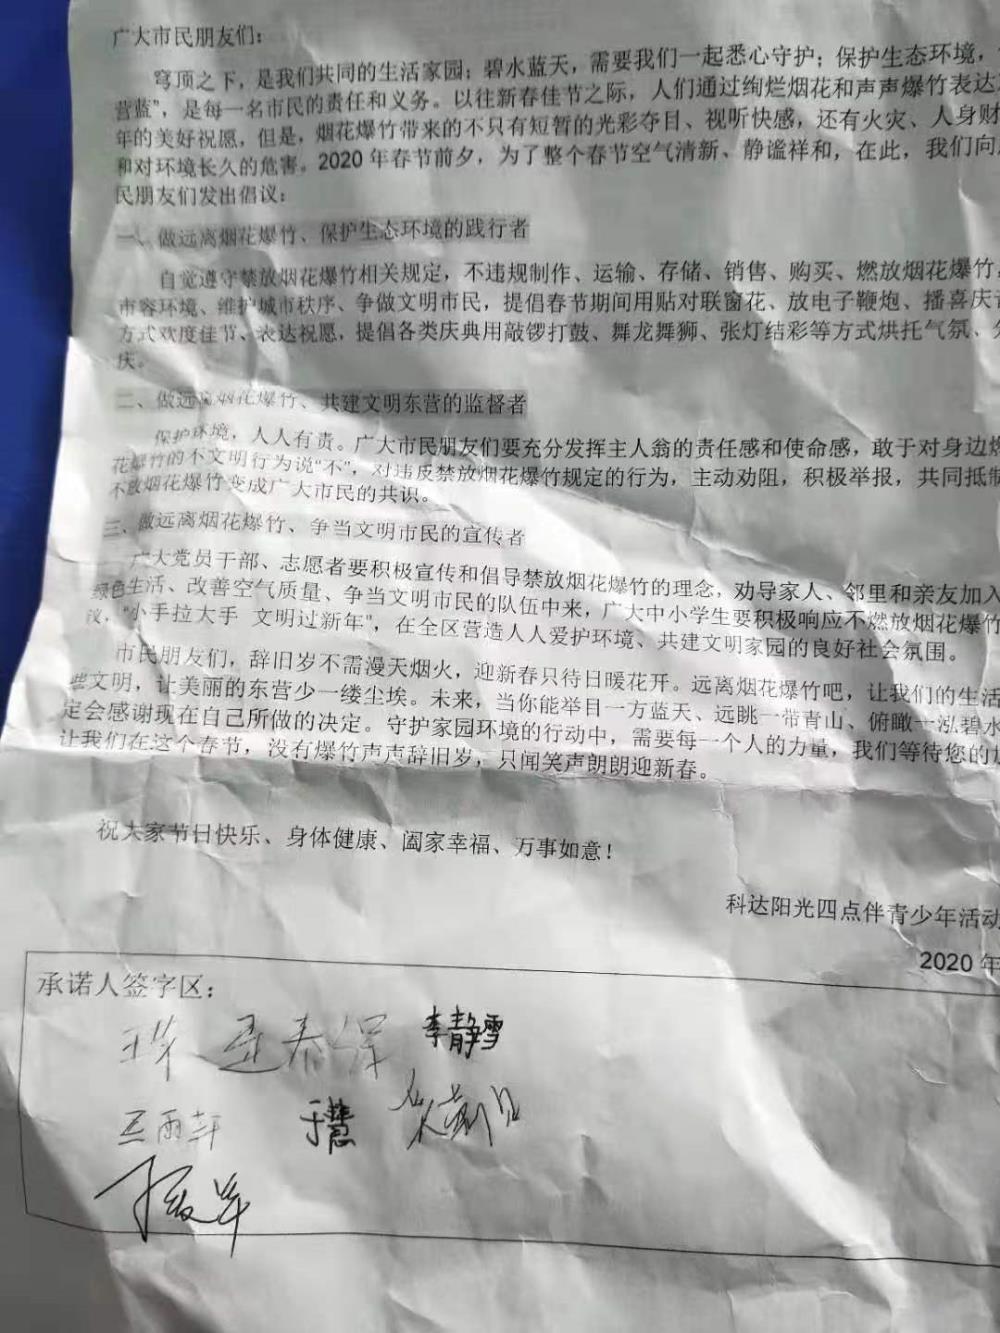 广大市民朋友们：
穹顶之下，是我们共同的生活家园；碧水蓝天，需要我们一起悉心守护；保护生态环境，
营蓝"，是每一名市民的责任和义务。以往新春佳节之际，人们通过绚烂烟花和声声爆竹表达
年的美好祝愿，但是，烟花爆竹带来的不只有短暂的光彩夺目、视听快感，还有火灾、人身财
和对环境长久的危害。2020年春节前夕，为了整个春节空气清新、静谧祥和，在此，我们向
民朋友们发出倡议：
一、做远离烟花爆竹、保护生态环境的践行者
自觉遵守禁放烟花爆竹相关规定，不违规制作、运输、存储、销售、购买、燃放烟花爆竹，
市容环境、维护城市秩序、争做文明市民，提倡春节期间用贴对联窗花、放电子鞭炮、播喜庆
方式欢度佳节、表达祝愿，提倡各类庆典用敲锣打鼓、舞龙舞狮、张灯结彩等方式烘托气氛、
庆。
二、做远离烟花爆竹、共建文明东营的监督者
保护环境，人人有责。广大市民朋友们要充分发挥主人翁的责任感和使命感，敢于对身边燃
花爆竹的不文明行为说"不"，对违反禁放烟花爆竹规定的行为，主动劝阻，积极举报，共同抵制
不放烟花爆竹变成广大市民的共识。
三、做远离烟花爆竹、争当文明市民的宣传者
广大党员干部、志愿者要积极宣传和倡导禁放烟花爆竹的理念，劝导家人、邻里和亲友加入
绿色生活、改善空气质量、争当文明市民的队伍中来，广大中小学生要积极响应不燃放烟花爆竹
议，"小手拉大手 文明过新年"，在全区营造人人爱护环境、共建文明家园的良好社会氛围。
市民朋友们，辞旧岁不需漫天烟火，迎新春只待日暖花开。远离烟花爆竹吧，让我们的生活
些文明，让美丽的东营少一缕尘埃。未来，当你能举目一方蓝天、远眺一带青山、俯瞰一泓碧水
定会感谢现在自己所做的决定。守护家园环境的行动中，需要每一个人的力量，我们等待您的
让我们在这个春节，没有爆竹声声辞旧岁，只闻笑声朗朗迎新春。
祝大家节日快乐、身体健康、阖家幸福、万事如意！
科达阳光四点伴青少年活动
2020年
承诺人签字区：
李静雪
王雨轩 于慧